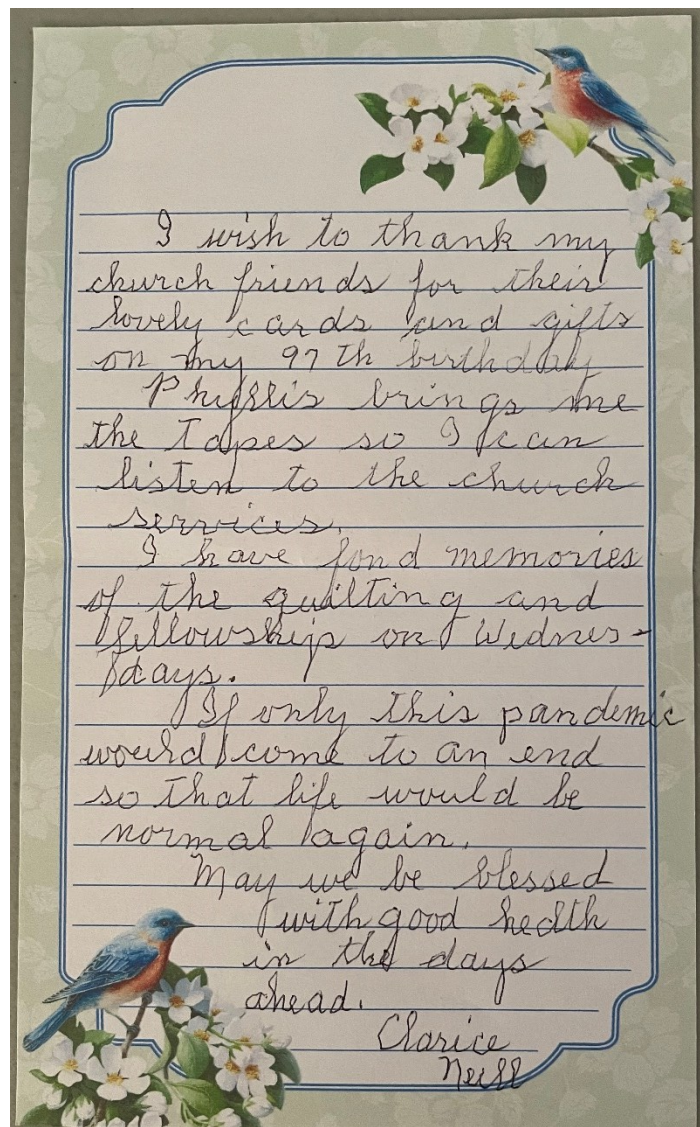 I wish to thank my
church friends for their
lovely cards and gifts
on my 97th birthday
Phyllis brings me
the Tapes so I can
listen to the church
services.
I have fond memories
of the quilting and
fellowship on Wednes-
days.
If only this pandemic
would come to an end
so that life would be
normal again.
May we be blessed
with good health
in the days
ahead.
Clarice
Neill